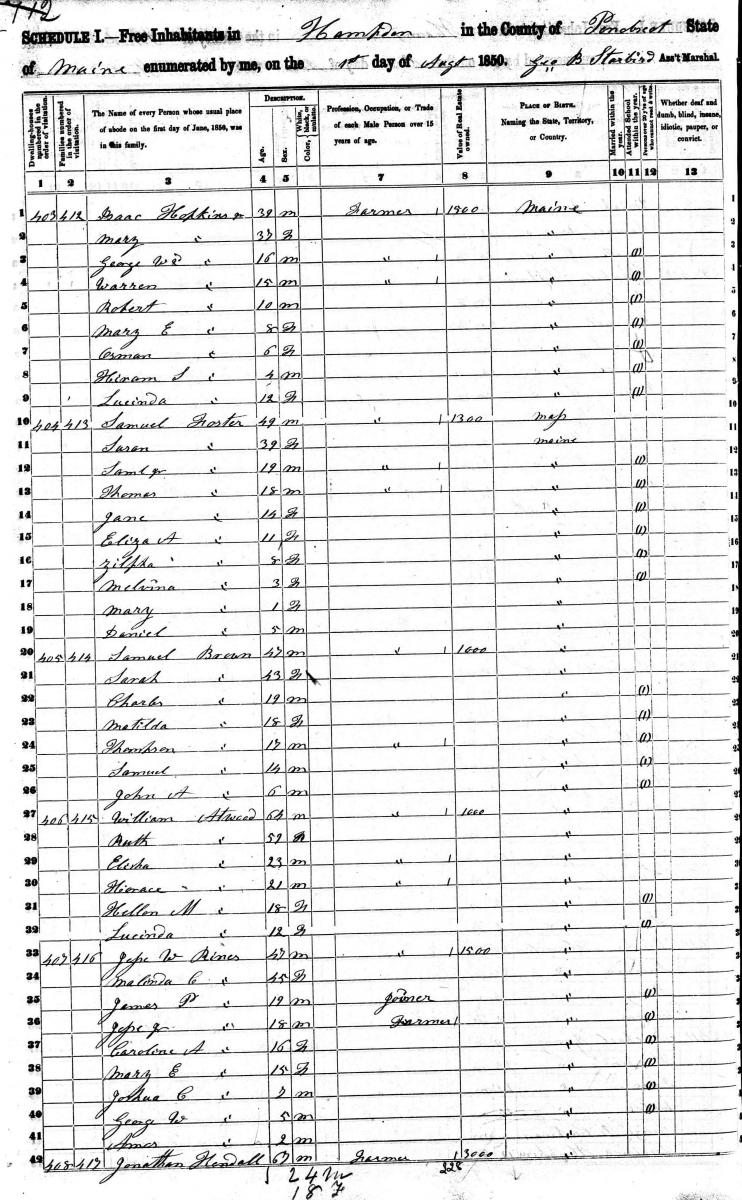 712
SCHEDULE I.—Free Inhabitants in Hampden in the County of Penobscot State
of Maine enumerated by me, on the 1st day of Augt 1850. Geo B Starbird Ass't Marshal.
Dwelling-houses numbered in the order of visitation.
Families numbered in the order of visitation.
The Name of every Person whose usual place of abode on the first day of June, 1850, was in this family.
DESCRIPTION.
Age.
Sex.
Color, White, black, or mulatto.
Profession, Occupation, or Trade of each Male Person over 15 years of age.
Value of Real Estate owned.
PLACE OF BIRTH. Naming the State, Territory, or Country.
Married within the year.
Attended School within the year.
Persons over 20 y'rs of age who cannot read & write.
Whether deaf and dumb, blind, insane, idiotic, pauper, or convict.
1 2 3 4 5 6 7 8 9 10 11 12 13
1 403 412 Isaac Hopkins Jr 39 m Farmer 1 Maine
2 Mary " 37 F "
3 George " 16 m " 1 " (1)
4 Warren " 15 m " 1 " (1)
5 Robert " 10 m " (1)
6 Mary E " 8 F " (1)
7 Orman " 6 F " (1)
8 Hiram S " 4 m " (1)
9 Lucinda " 12 F " (1)
10 404 413 Samuel Foster 49 m " 1 1300 Mass
11 " 39 F Maine
12 Saml Jr " 19 m " 1 " (1)
13 Thomas " 18 m " 1 " (1)
14 Jane " 14 F " (1)
15 Eliza A " 11 F " (1)
16 Zilpha " 8 F " (1)
17 Melvina " 3 F " (1)
18 Mary " 1 F "
19 Daniel " 5 m "
20 405 414 Samuel Brown 47 m " 1 1000 "
21 Sarah " 43 F "
22 Charles " 19 m " (1)
23 Matilda " 18 F " (1)
24 Thompson " 17 m " 1 " (1)
25 Samuel " 14 m " (1)
26 John A " 6 m " (1)
27 406 415 William Atwood 64 m " 1 1000 "
28 Ruth " 59 F "
29 Elisha " 23 m " 1 "
30 Horace " 21 m " 1 "
31 Hellen M " 18 F " (1)
32 Lucinda " 12 F " (1)
33 407 416 Jesse W Rines 47 m " 1 1500 "
34 Malinda C " 45 F "
35 James P " 19 m Joiner " (1)
36 Jesse Jr " 18 m Farmer 1 " (1)
37 Caroline A " 16 F " (1)
38 Mary E " 15 F " (1)
39 Joshua C " 7 m " (1)
40 George W " 5 m " (1)
41 Amos " 2 m "
42 408 417 Jonathan 67 m Farmer 1 3000 "
24 m
18 F
228